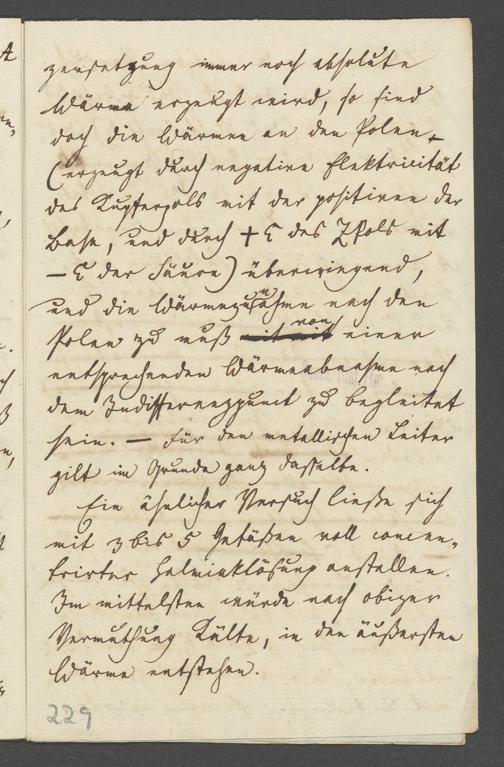 zersetzung immer noch absolute
Wärme erzeugt wird, so sind
doch die Wärmen an den Polen
(erzeugt durch negative Elektricität
des Kupferpols mit der positiven der
Base, und durch + E des ZPols mit
– E der Säure) überwiegend,
und die Wärmezunahme nach den
Polen zu muß von einer
entsprechenden Wärmeabnahme nach
dem Indifferenzpunct zu begleitet
sein. – Für den metallischen Leiter
gilt im Grunde ganz dasselbe.
Ein ähnlicher Versuch ließe sich
mit 3 bis 5 Gefäßen voll concen„
trirter Salmiaklösung anstellen.
Im mittelsten würde nach obiger
Vermuthung Kälte, in den äußersten
Wärme entstehen.
229